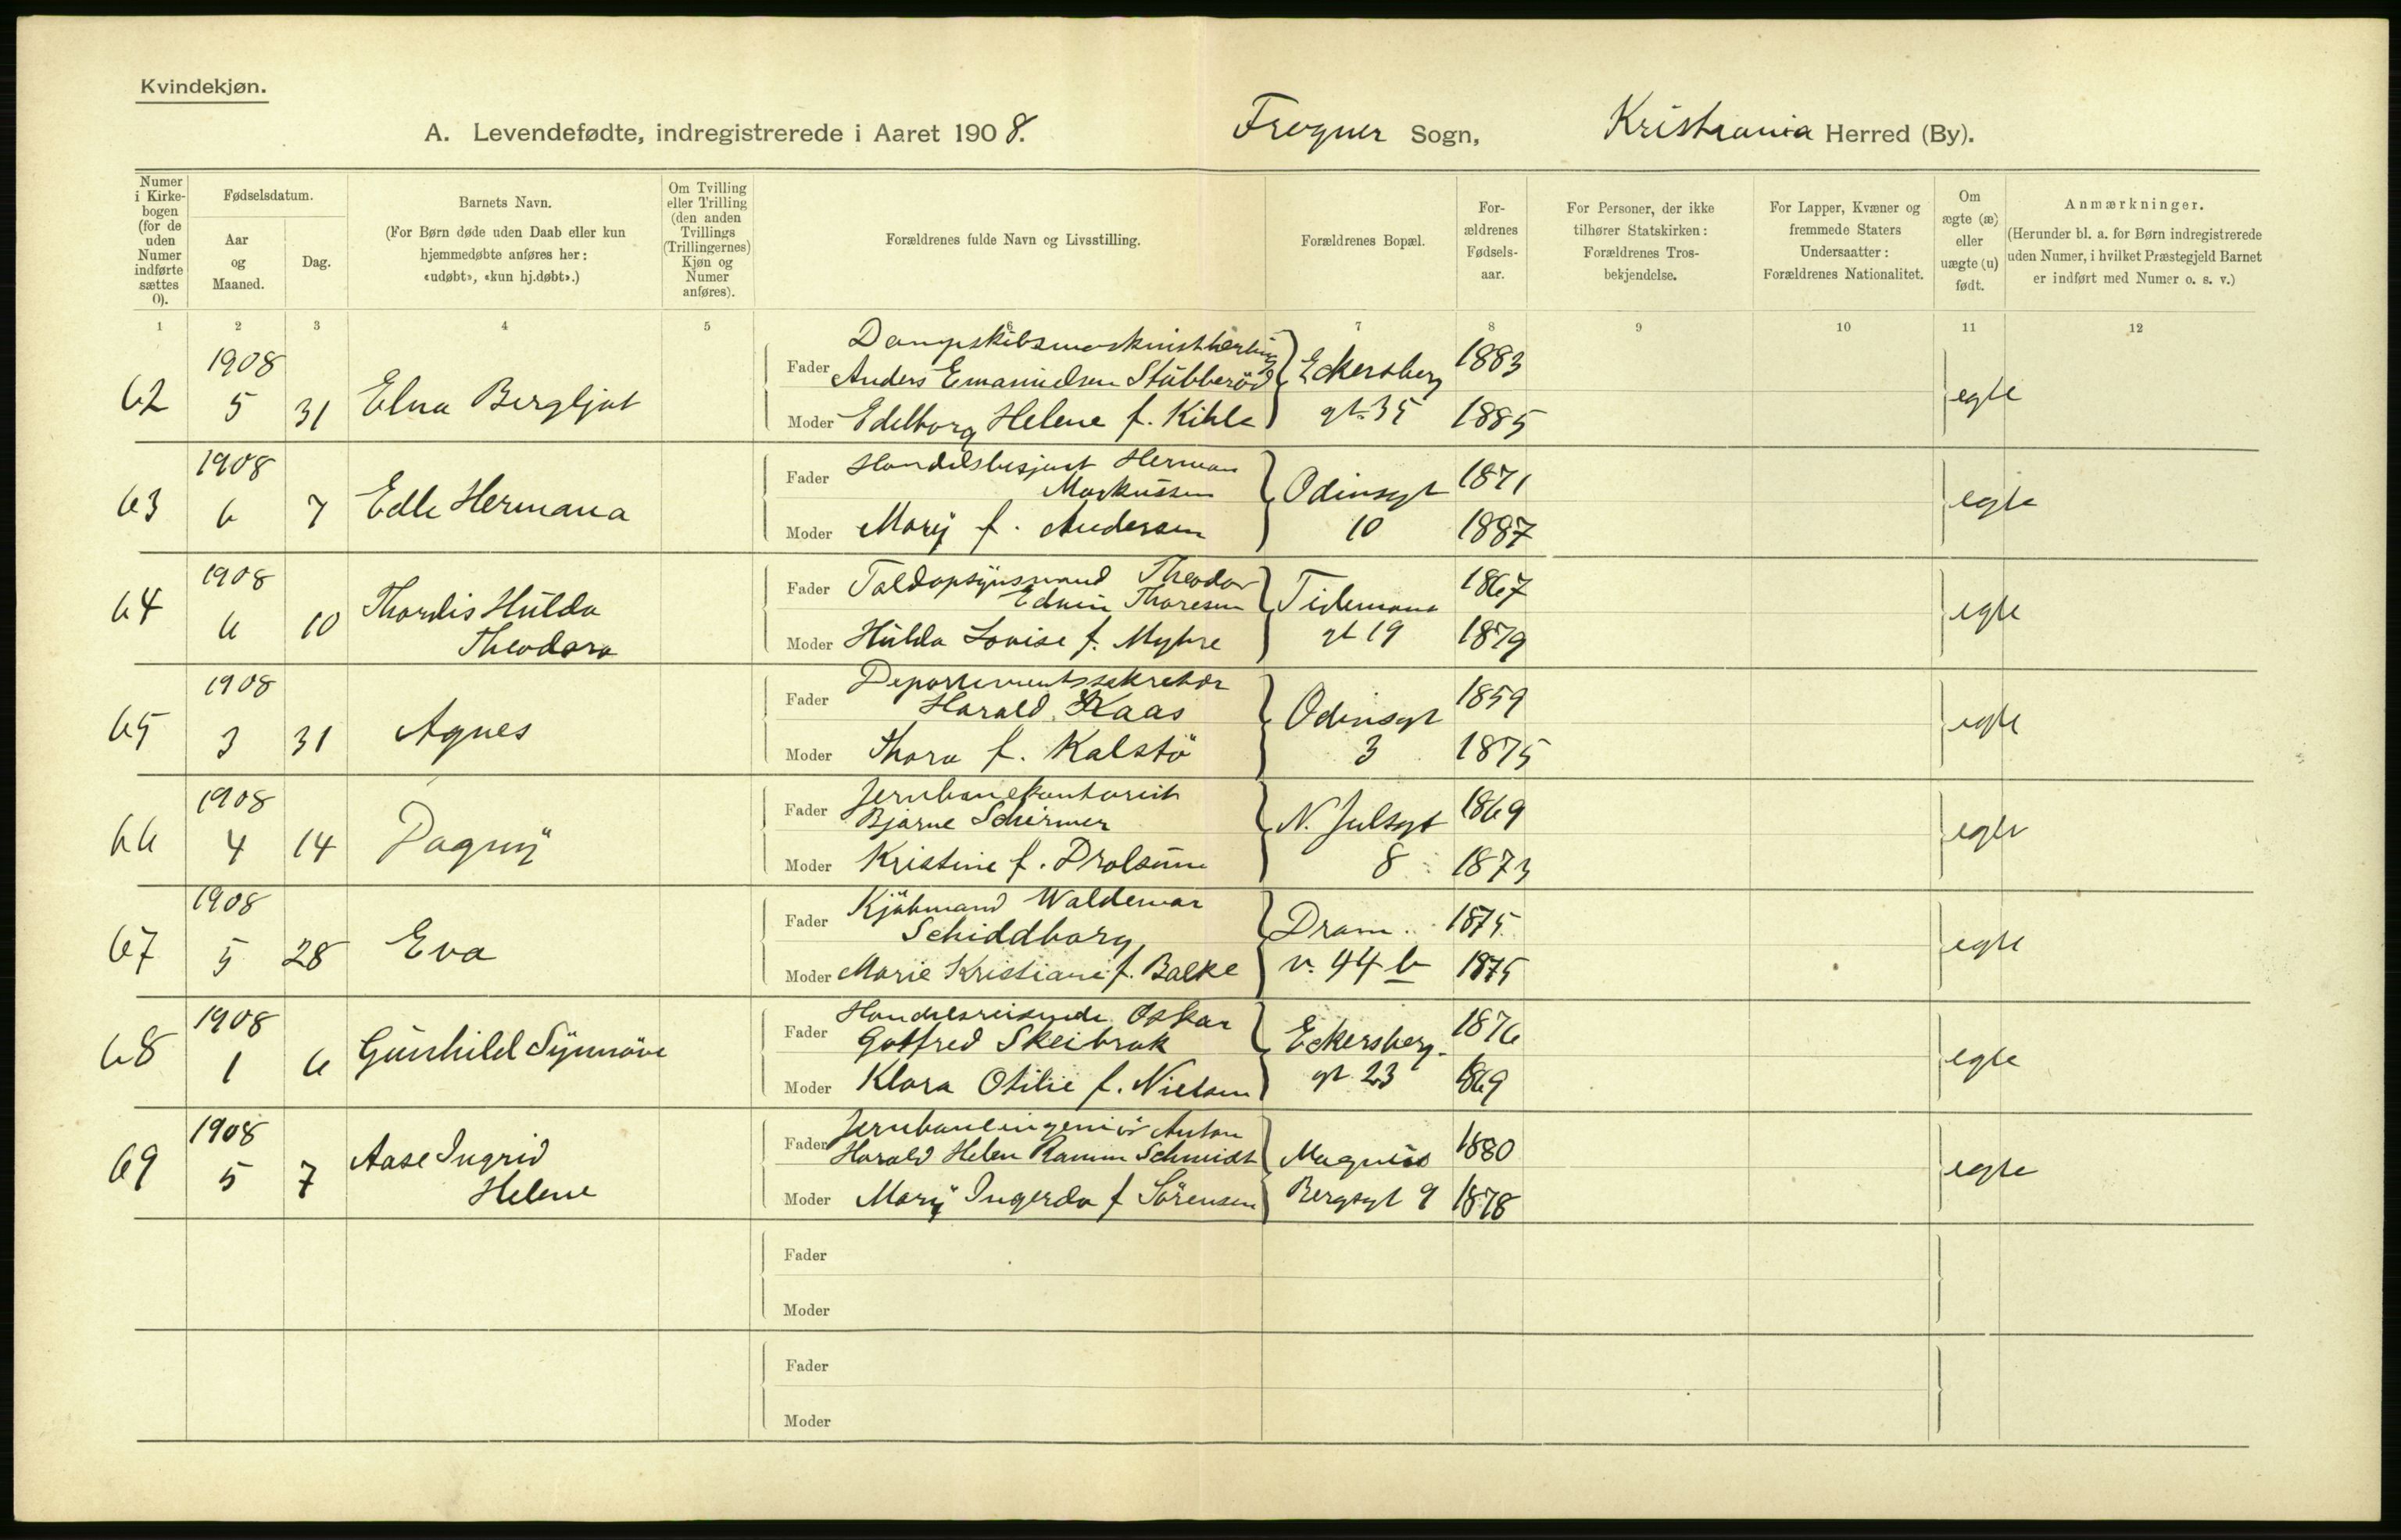 Kvindekjøn.
A. Levendefødte, indregistrerede i Aaret 1908. Frogner Sogn, Kristiania Herred (By).
Numer i Kirkebogen (for de uden Numer indførte sættes 0).
Fødselsdatum.
Aar og Maaned.
Dag.
Barnets Navn.
(For Børn døde uden Daab eller kun hjemmedøbte anføres her: «udøbt», «kun hj.døbt».)
Om Tvilling eller Trilling (den anden Tvillings (Trillingernes) Kjøn og Numer anføres).
Forældrenes fulde Navn og Livsstilling.
Forældrenes Bopæl.
Forældrenes Fødselsaar.
For Personer, der ikke tilhører Statskirken: Forældrenes Trosbekjendelse.
For Lapper, Kvæner og fremmede Staters Undersaatter: Forældrenes Nationalitet.
Om ægte (æ) eller uægte (u) født.
Anmærkninger.
(Herunder bl. a. for Børn indregistrerede uden Numer, i hvilket Præstegjeld Barnet er indført med Numer o. s. v.)
1 2 3 4 5 6 7 8 9 10 11 12
62 1908 5 31 Elna Bergljot
Fader Dampskibsmaskinist
Anders Emanuelsen Stubberöd Eckersberg 1883
Moder Edelborg Helene f. Kihle gt. 35 1885 egte
63 1908 6 7 Edle Hermana
Fader Handelsbesjent Herman
Markussen Odinsgt 1871
Moder Mary f. Andersen 10 1887 egte
64 1908 6 10 Thordis Hulda
Theodora
Fader Toldopsynsmand Theodor
Edwin Thoresen Tidemans 1867
Moder Hulda Lovise f. Myhre gt 19 1879 egte
65 1908 3 31 Agnes
Fader Departementssekretær
Harald Kaas Odinsgt 1859
Moder Thora f. Kalstö 3 1875 egte
66 1908 4 14 Dagny
Fader Jernbanekontorist
Bjarne Schirmer N. Julsgt 1869
Moder Kristine f. Drolsum 8 1873 egte
67 1908 5 28 Eva
Fader Kjöbmand Waldemar
Schiddborg Dram. 1875
Moder Marie Kristiane f. Balke v. 44 b 1875 egte
68 1908 1 6 Gunhild Synnöve
Fader Handelsreisende Oskar
Gotfred Skeibrok Eckersberg 1876
Moder Klara Otilie f. Nielsen gt 23 1869 egte
69 1908 5 7 Aase Ingrid
Helene
Fader Jernbaneingeniör Anton
Harald Helen Ramm Schmidt Magnus 1880
Moder Mary Ingerda f Sörensen Bergsgt 9 1878 egte
Fader
Moder
Fader
Moder